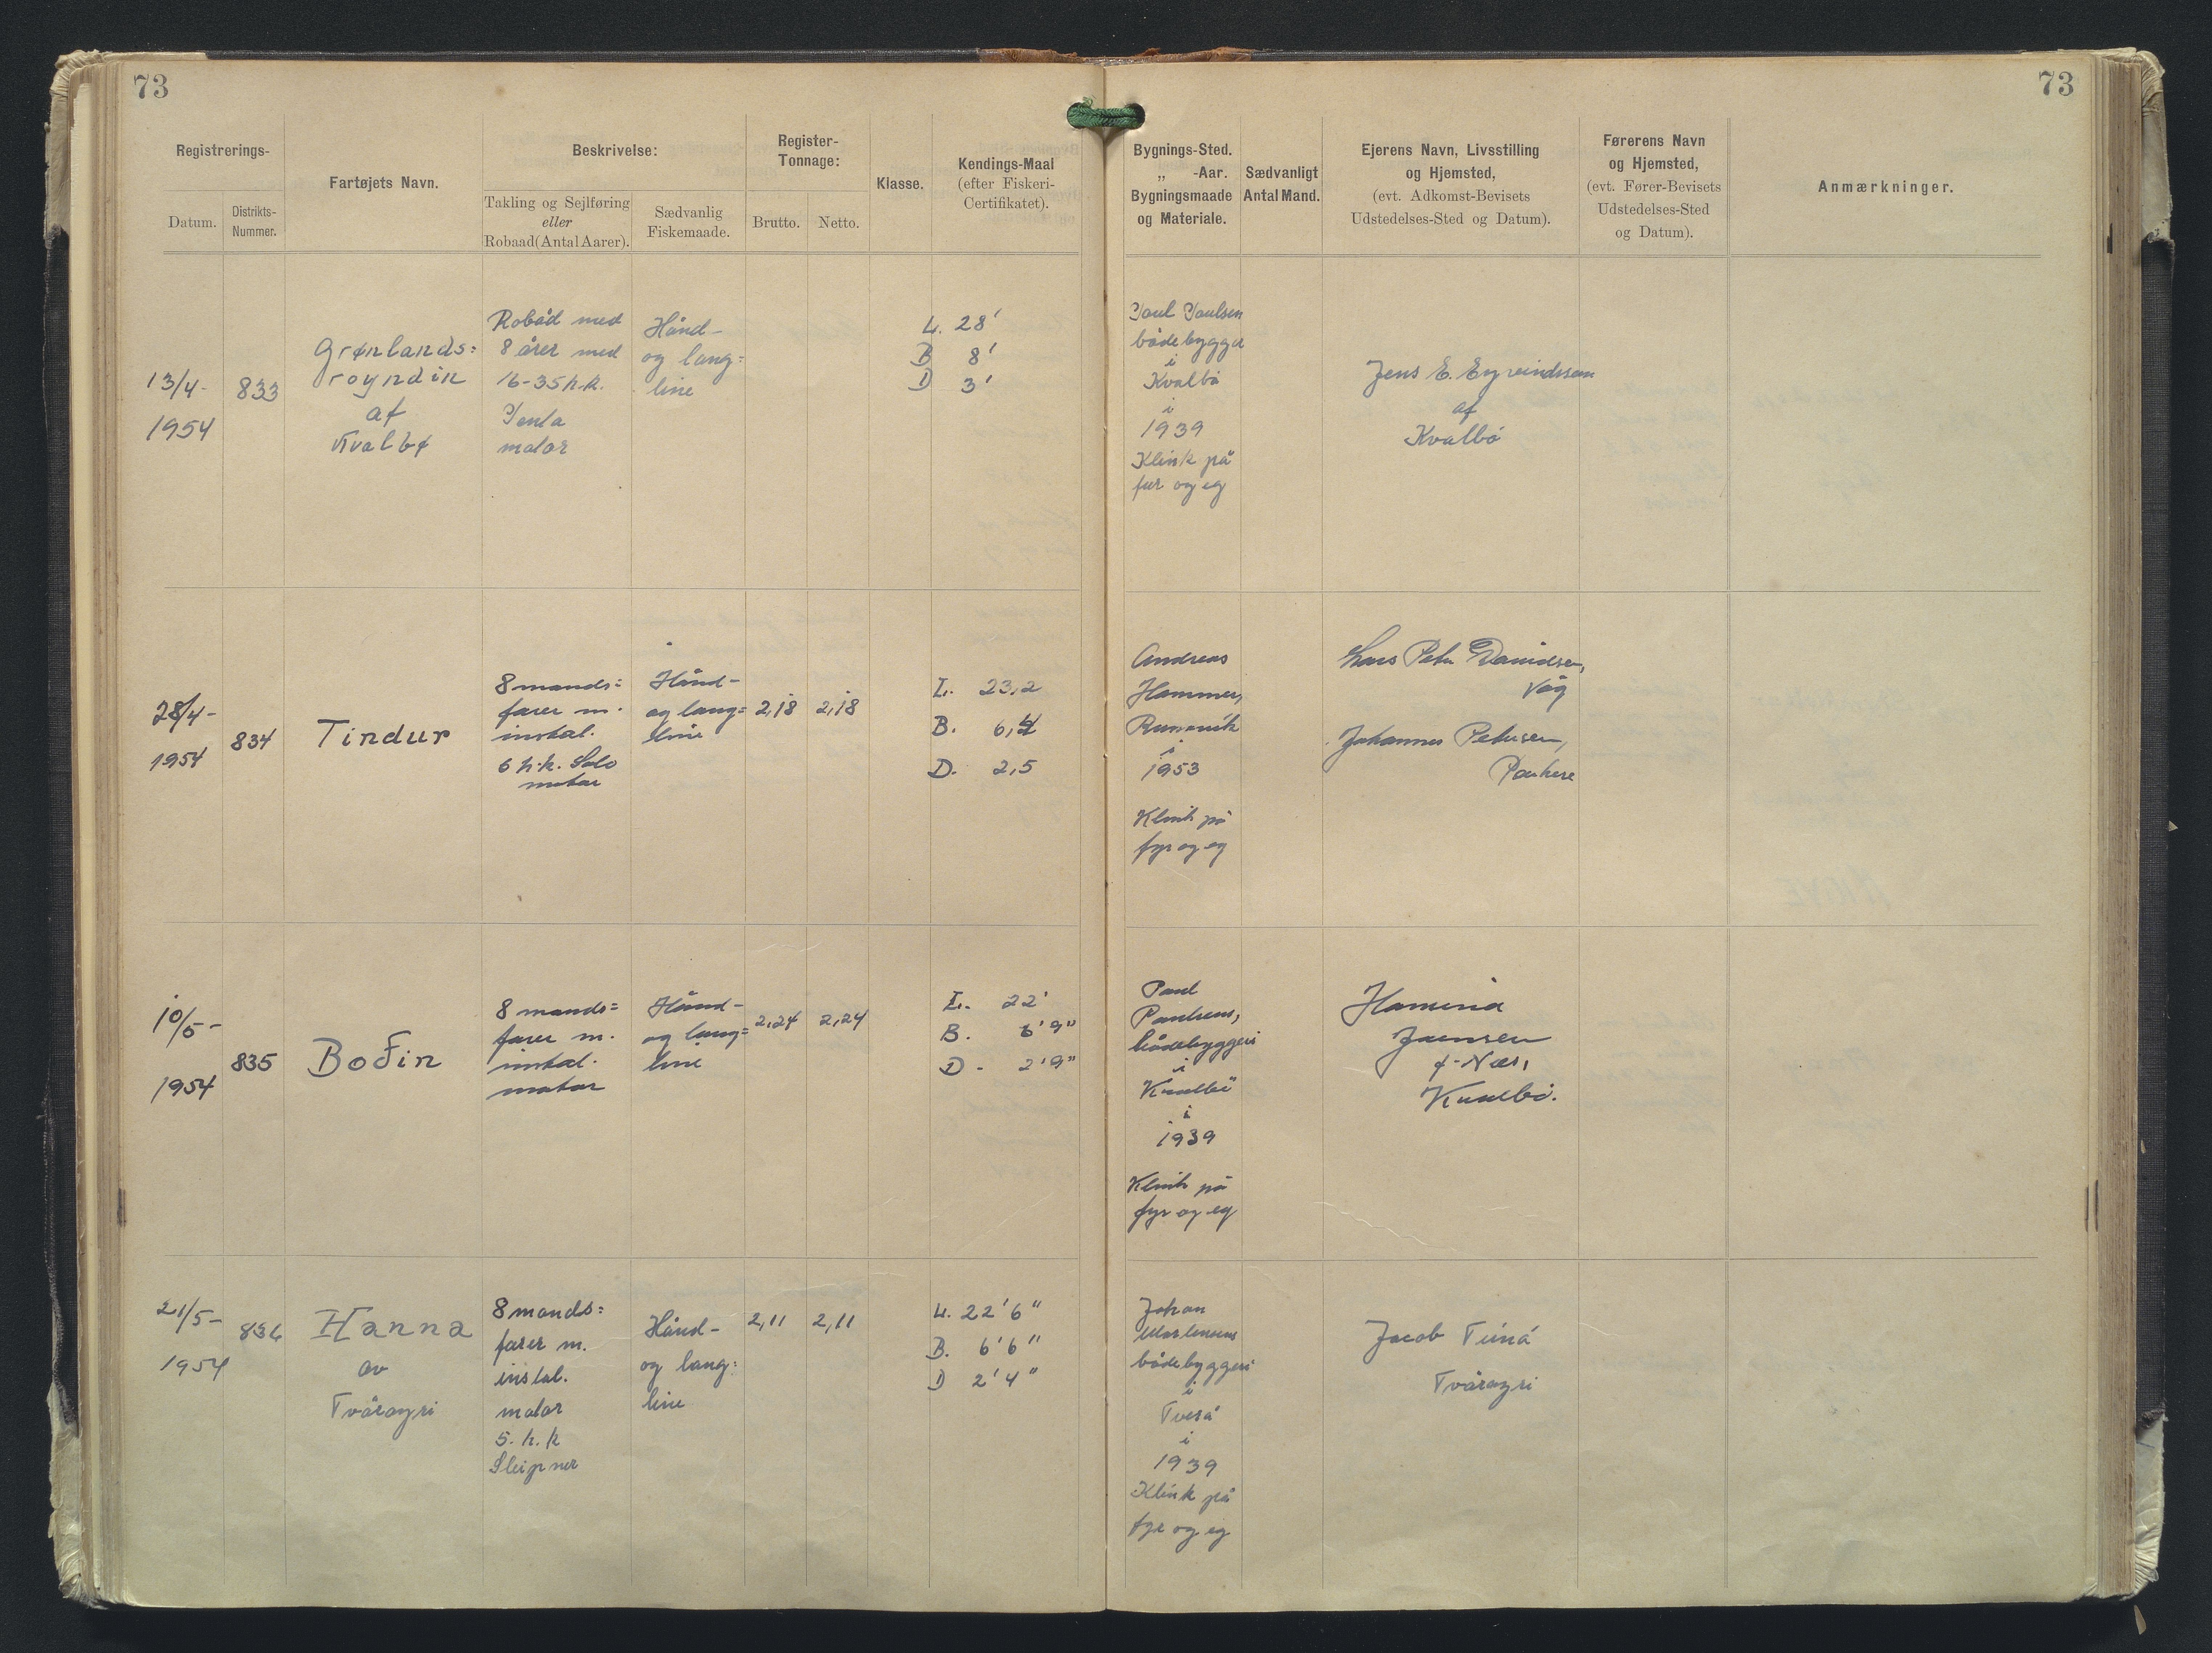 73
73
Registrerings-
Datum.
Distrikts-
Nummer.
Fartøjets Navn.
Beskrivelse:
Takling og Sejlføring
eller
Robaad (Antal Aarer).
Sædvanlig
Fiskemaade.
Register-
Tonnage:
Brutto.
Netto.
Klasse.
Kendings-Maal
(efter Fiskeri-
Certifikatet).
Bygnings-Sted.
„ -Aar.
Bygningsmaade
og Materiale.
Sædvanligt
Antal Mand.
Ejerens Navn, Livsstilling
og Hjemsted,
(evt. Adkomst-Bevisets
Udstedelses-Sted og Datum).
Førerens Navn
og Hjemsted,
(evt. Fører-Bevisets
Udstedelses-Sted
og Datum).
Anmærkninger.
13/4-
1954
833
Grønlands=
royndin
af
Kvalbø
Robåd med
8 årer med
16-35 h.k.
Penta
motor
Hånd-
og lang=
line
L. 28'
B 8'
D 3'
Poul Poulsen
bådebygger
i
Kvalbø
i
1939
Klink på
fur og eg
Jens E. Eyvindssen
af
Kvalbø
28/4-
1954
834
Tindur
8 mands=
farer m.
instal.
6 h.k. Solo
motor
Hånd-
og lang=
line
2,18
2,18
L. 23,2
B. 6,4
D. 2,5
Andreas
Hammer,
i
1953
Klink på
fyr og eg
Lars Peter Davidsen,
Våg
Johannes Petersen,
Porkere
10/5-
1954
835
Bođin
8 mands=
farer m.
instal.
motor
Hånd-
og lang=
line
2,24
2,24
L. 22'
B. 6'9"
D - 2'9"
Poul
Poulsens,
bådebyggeri
i
Kvalbø
i
1939
Klink på
fyr og eg
Joensen
f. Nes,
Kvalbø.
21/5-
1954
836
Hanna
av
Tvøroyri
8 mands=
farer m.
instal.
motor
5. h.k
Sleipner
Hånd-
og lang=
line
2,11
2,11
L. 22'6"
B. 6'6"
D 2'4"
Johan
Mortensens
bådebyggeri
i
Tverá
i
1939
Klink på
fyr og eg
Jacob
Tvøroyri